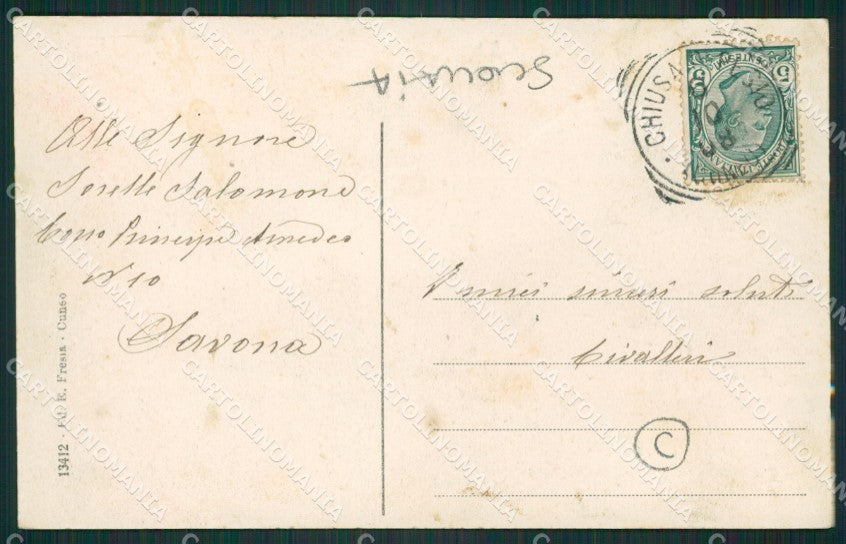 Alle Signore
Sorelle Salomone
Corso Principe Amedeo
N 10
Savona
I miei sinceri saluti
Civalleri
C
CHIUSA
13412 - Ed. E. Fresia - Cuneo
CARTOLINOMANIA